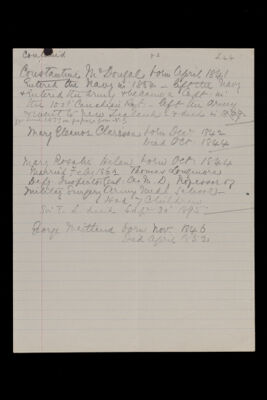 Continued
Constantine McDougal born April 1841
Entered the Navy in 1854 – left the Navy
& Entered the Army & became Capt. in
the 100th Canadian Regt – left the Army
& went to New Zealand & died
Mary Eleanor Clarissa born Decr 1842
Dead Oct 1844
Mary Rosalie Helen born Oct 1844
Married Feb 1863 Thomas Longmore
Depy Inspector Genl A.M.D. Professor of
Military Surgery Army Medl School –
Had 7 Children
Sir T. L. died Sept 30 1895
George Maitland born Nov. 1846
Dead April 1853